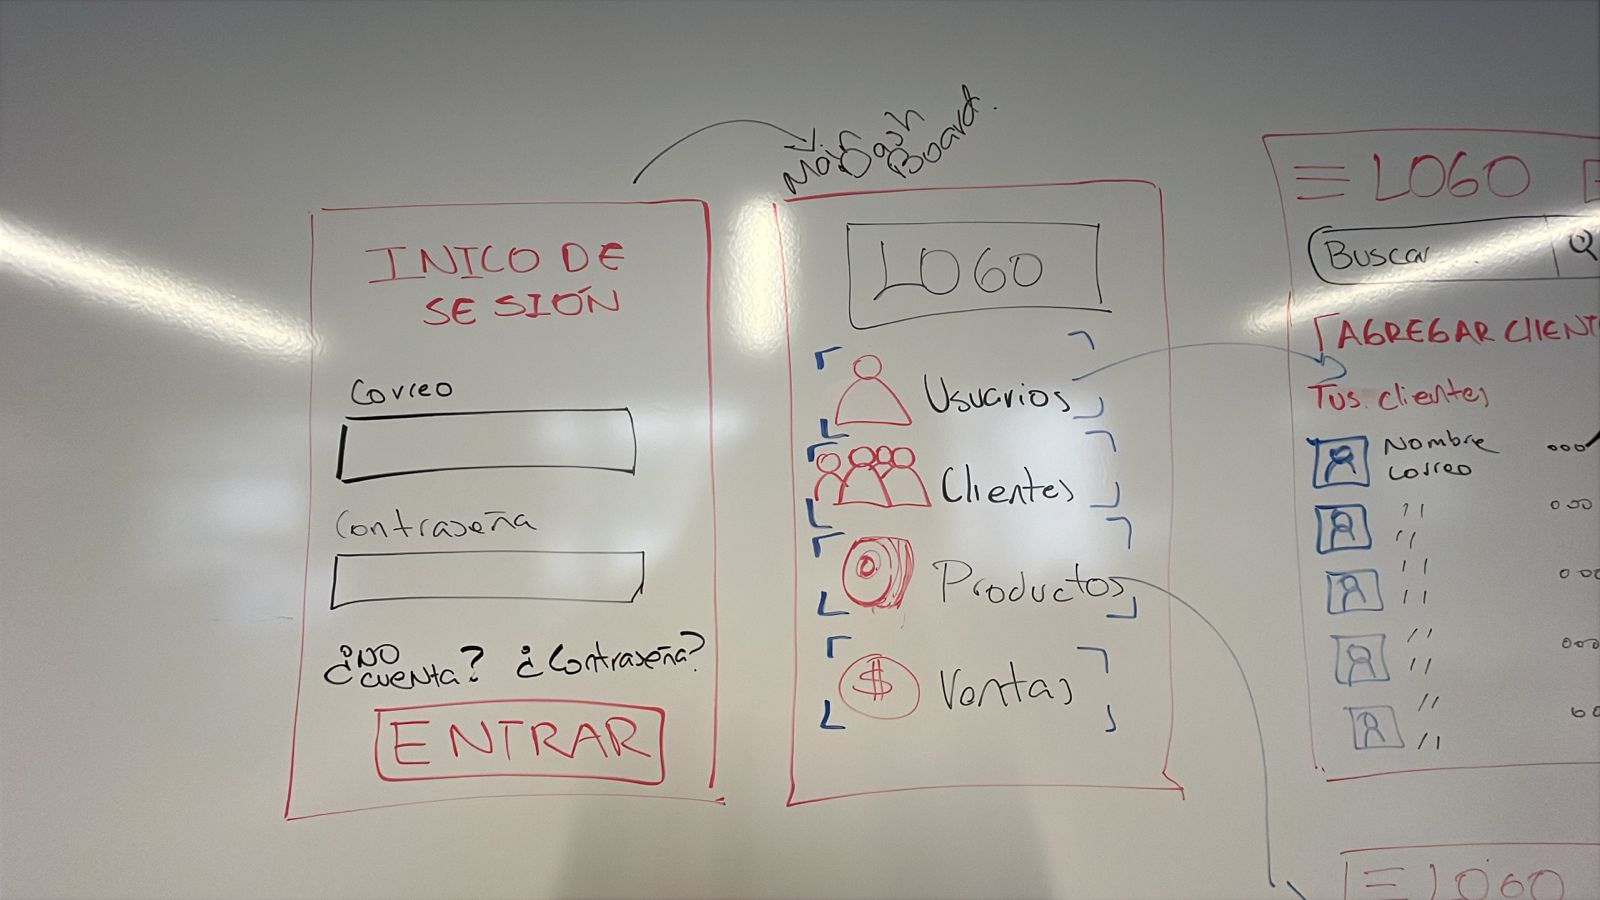 INICO DE
SESIÓN
Correo
Contraseña
¿NO
cuenta?
¿Contraseña?
ENTRAR
Main Dash
Board.
LOGO
Usuarios
Clientes
Productos
$ Ventas
LOGO
Buscar
AGREGAR CLIENT
Tus clientes
Nombre
correo
LOGO